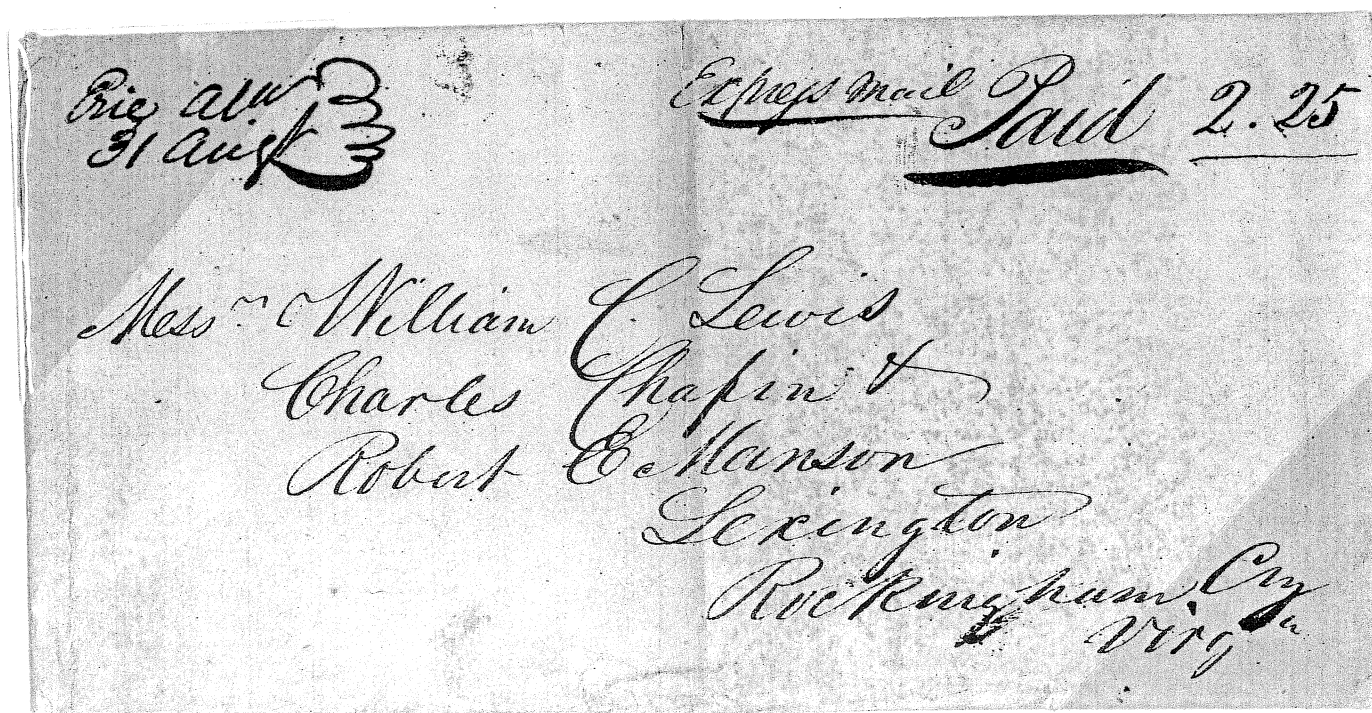 Erie Ala
31 Aug
Express Mail Paid 2.25
Mess rs William C. Lewis
Charles Chapin &
Robert E Manson
Lexington
Rockingham Cty
Virga